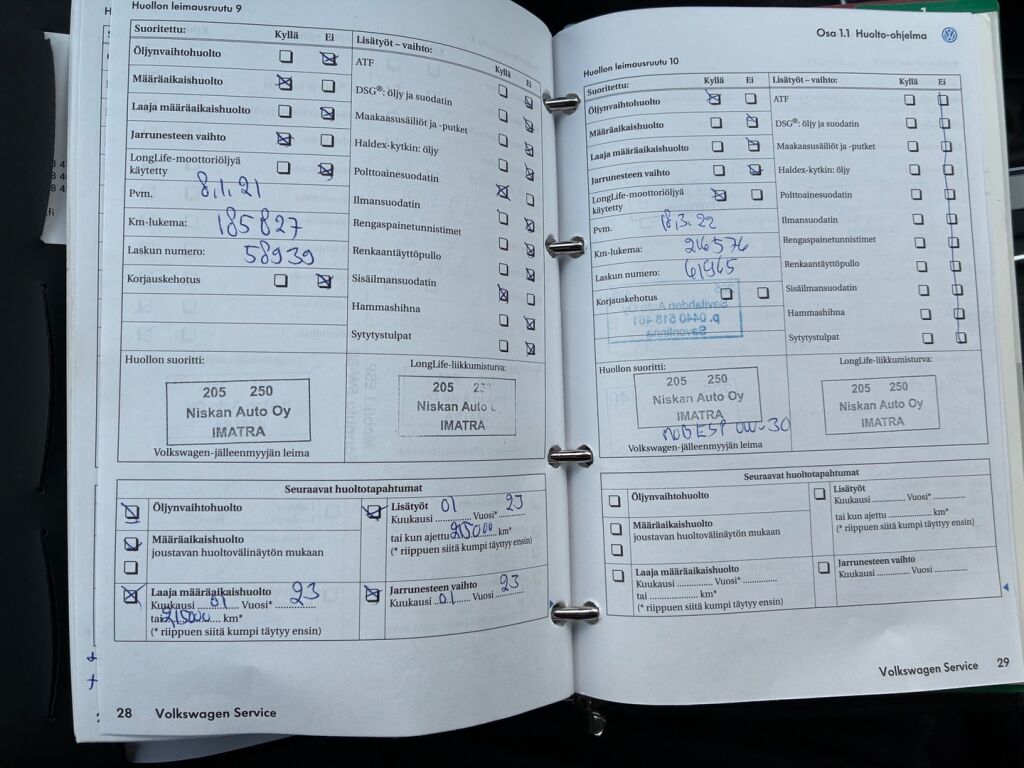 Huollon leimausruutu 9
Suoritettu: Kyllä Ei
Öljynvaihtohuolto
Määräaikaishuolto
Laaja määräaikaishuolto
Jarrunesteen vaihto
LongLife-moottoriöljyä
käytetty
Pvm. 8.1.21
Km-lukema: 185827
Laskun numero: 58939
Korjauskehotus
Lisätyöt – vaihto: Kyllä Ei
ATF
DSG®: öljy ja suodatin
Maakaasusäiliöt ja -putket
Haldex-kytkin: öljy
Polttoainesuodatin
Ilmansuodatin
Rengaspainetunnistimet
Renkaantäyttöpullo
Sisäilmansuodatin
Hammashihna
Sytytystulpat
Huollon suoritti:
205 250
Niskan Auto Oy
IMATRA
Volkswagen-jälleenmyyjän leima
LongLife-liikkumisturva:
205
Niskan Auto
IMATRA
Seuraavat huoltotapahtumat
Öljynvaihtohuolto
Määräaikaishuolto
joustavan huoltovälinäytön mukaan
Laaja määräaikaishuolto
Kuukausi 01 Vuosi* 23
tai 215000 km*
(* riippuen siitä kumpi täytyy ensin)
Lisätyöt
Kuukausi 01 Vuosi* 23
tai kun ajettu 215000 km*
(* riippuen siitä kumpi täytyy ensin)
Jarrunesteen vaihto
Kuukausi 01 Vuosi 23
28 Volkswagen Service
Osa 1.1 Huolto-ohjelma
Huollon leimausruutu 10
Suoritettu: Kyllä Ei
Öljynvaihtohuolto
Määräaikaishuolto
Laaja määräaikaishuolto
Jarrunesteen vaihto
LongLife-moottoriöljyä
käytetty
Pvm. 18.3.22
Km-lukema: 216576
Laskun numero: 61965
Korjauskehotus
Lisätyöt – vaihto: Kyllä Ei
ATF
DSG®: öljy ja suodatin
Maakaasusäiliöt ja -putket
Haldex-kytkin: öljy
Polttoainesuodatin
Ilmansuodatin
Rengaspainetunnistimet
Renkaantäyttöpullo
Sisäilmansuodatin
Hammashihna
Sytytystulpat
Huollon suoritti:
205 250
Niskan Auto Oy
IMATRA
MOB ESP 0W-30
Volkswagen-jälleenmyyjän leima
LongLife-liikkumisturva:
205 250
Niskan Auto Oy
IMATRA
Seuraavat huoltotapahtumat
Öljynvaihtohuolto
Määräaikaishuolto
joustavan huoltovälinäytön mukaan
Laaja määräaikaishuolto
Kuukausi Vuosi*
tai km*
(* riippuen siitä kumpi täytyy ensin)
Lisätyöt
Kuukausi Vuosi*
tai kun ajettu km*
(* riippuen siitä kumpi täytyy ensin)
Jarrunesteen vaihto
Kuukausi Vuosi
Volkswagen Service 29